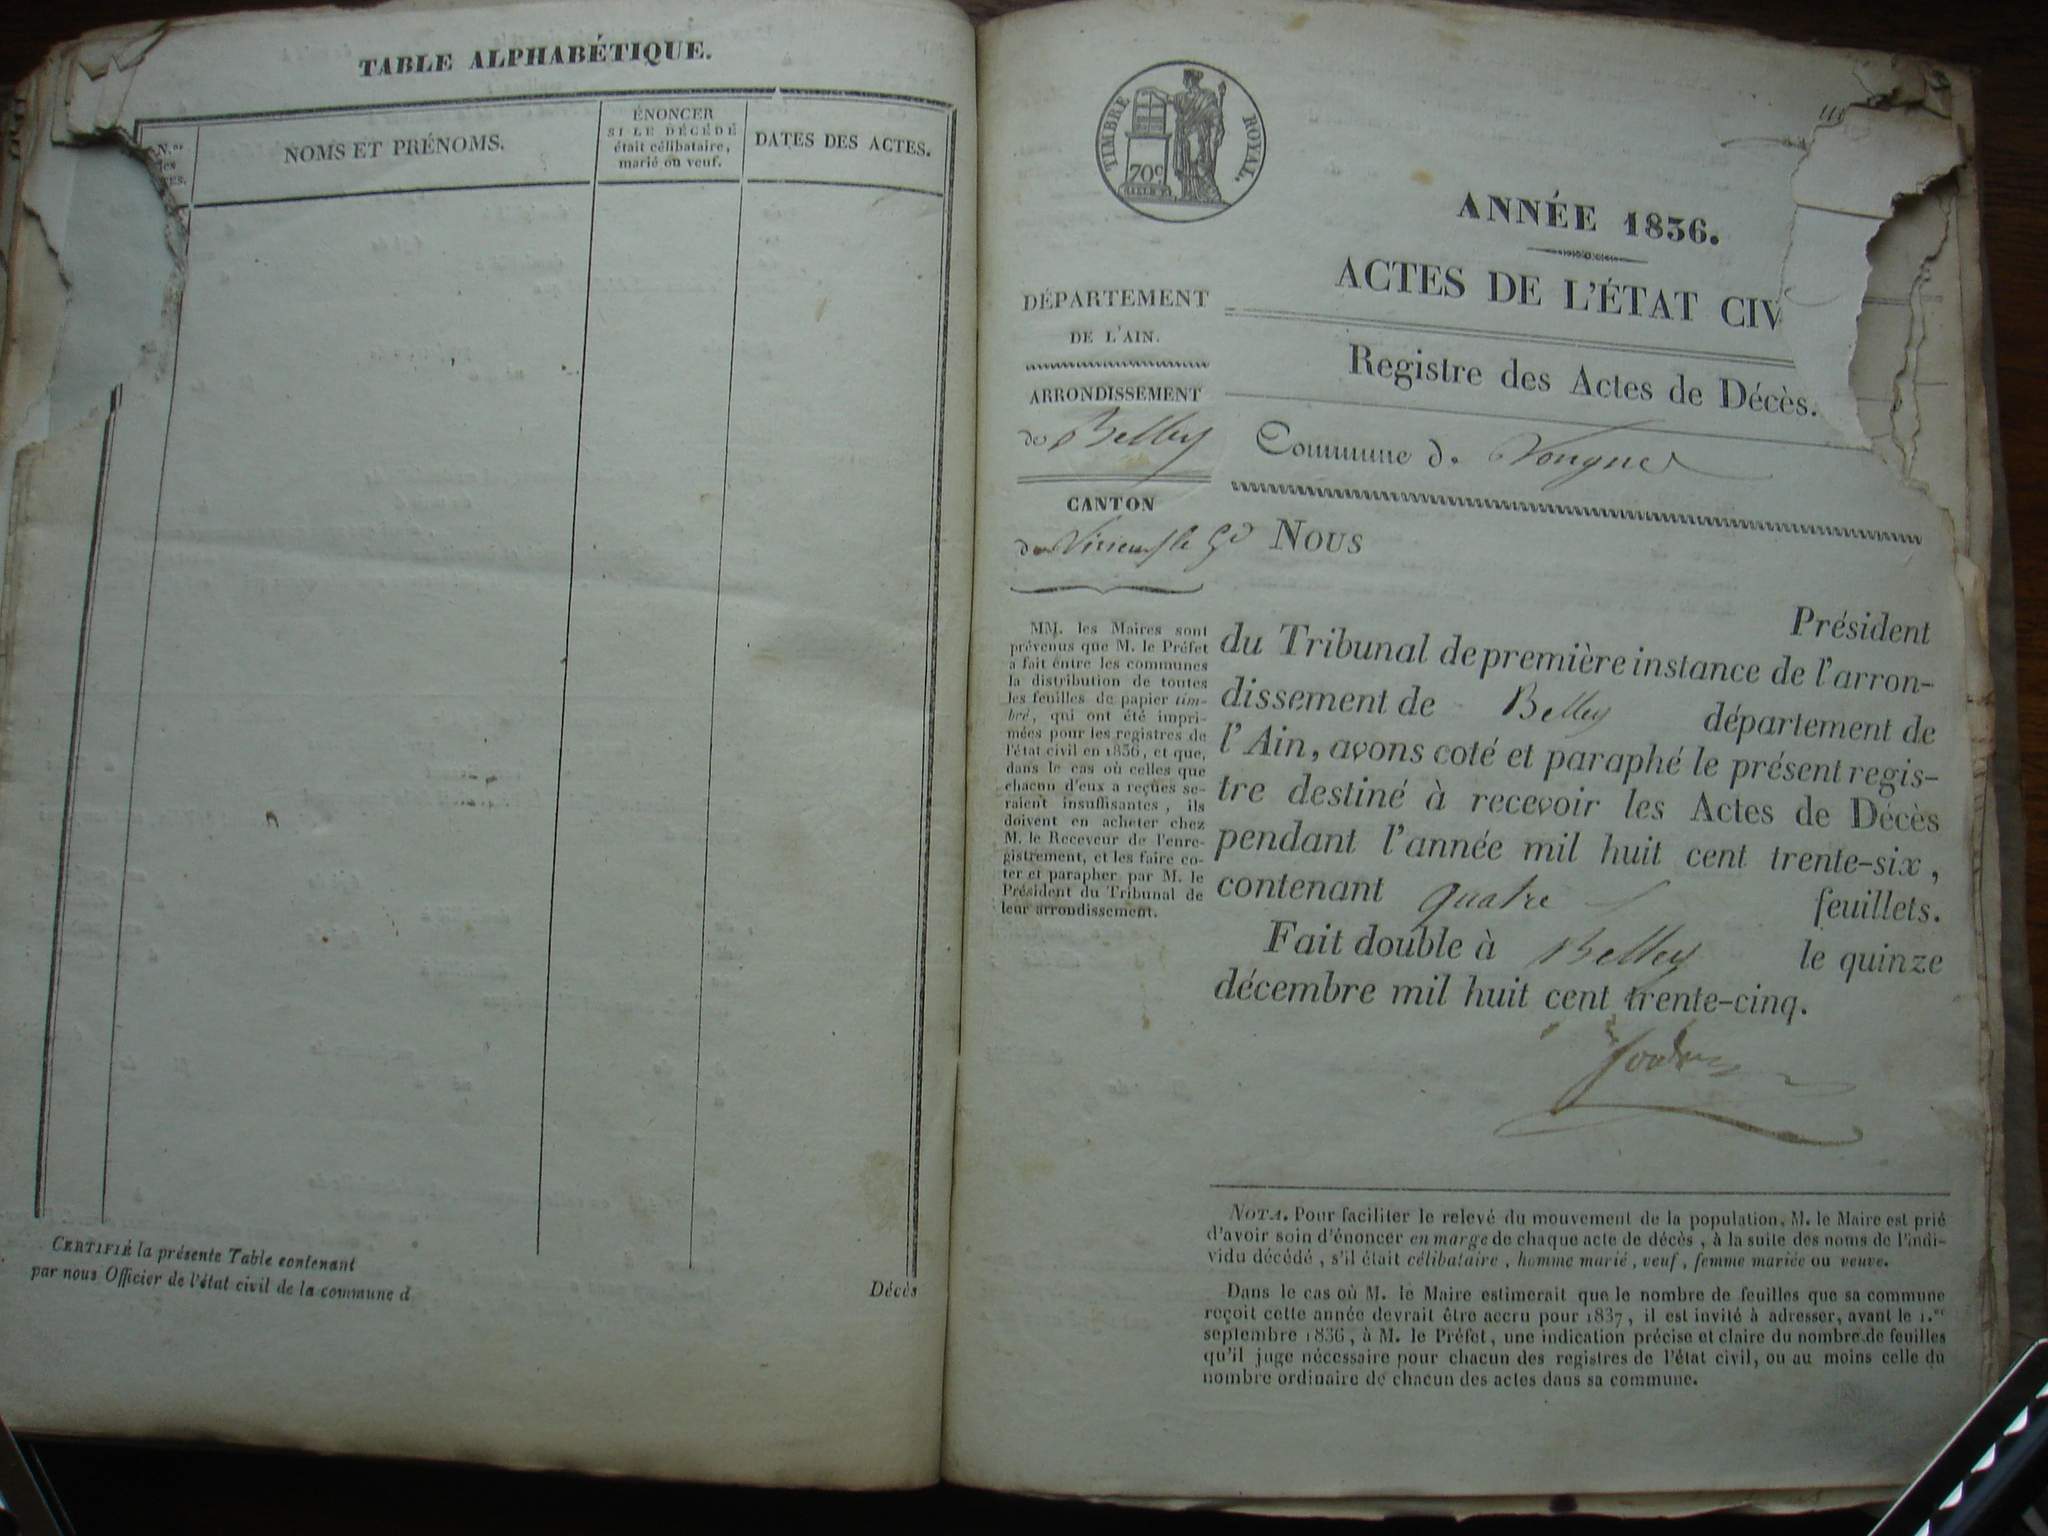 TABLE ALPHABÉTIQUE.
N.os
des
NOMS ET PRÉNOMS.
ÉNONCER
SI LE DÉCÉDÉ
était célibataire,
marié ou veuf.
DATES DES ACTES.
CERTIFIÉ la présente Table contenant
Décès
par nous Officier de l'état civil de la commune d
TIMBRE ROYAL.
70c
ANNÉE 1836.
ACTES DE L'ÉTAT CIV
Registre des Actes de Décès.
Commune de Vongnes
DÉPARTEMENT
DE L'AIN.
ARRONDISSEMENT
de Belley
CANTON
de Virieu le Gd
MM. les Maires sont
prévenus que M. le Préfet
a fait entre les communes
la distribution de toutes
les feuilles de papier tim-
bré, qui ont été impri-
mées pour les registres de
l'état civil en 1836, et que,
dans le cas où celles que
chacun d'eux a reçues se-
raient insuffisantes, ils
doivent en acheter chez
M. le Receveur de l'enre-
gistrement, et les faire co-
ter et parapher par M. le
Président du Tribunal de
leur arrondissement.
NOUS
Président
du Tribunal de première instance de l'arron-
dissement de Belley département de
l'Ain, avons coté et paraphé le présent regis-
tre destiné à recevoir les Actes de Décès
pendant l'année mil huit cent trente-six,
contenant quatre feuillets.
Fait double à Belley le quinze
décembre mil huit cent trente-cinq.
NOTA. Pour faciliter le relevé du mouvement de la population, M. le Maire est prié
d'avoir soin d'énoncer en marge de chaque acte de décès, à la suite des noms de l'indi-
vidu décédé, s'il était célibataire, homme marié, veuf, femme mariée ou veuve.
Dans le cas où M. le Maire estimerait que le nombre de feuilles que sa commune
reçoit cette année devrait être accru pour 1837, il est invité à adresser, avant le 1.er
septembre 1836, à M. le Préfet, une indication précise et claire du nombre de feuilles
qu'il juge nécessaire pour chacun des registres de l'état civil, ou au moins celle du
nombre ordinaire de chacun des actes dans sa commune.